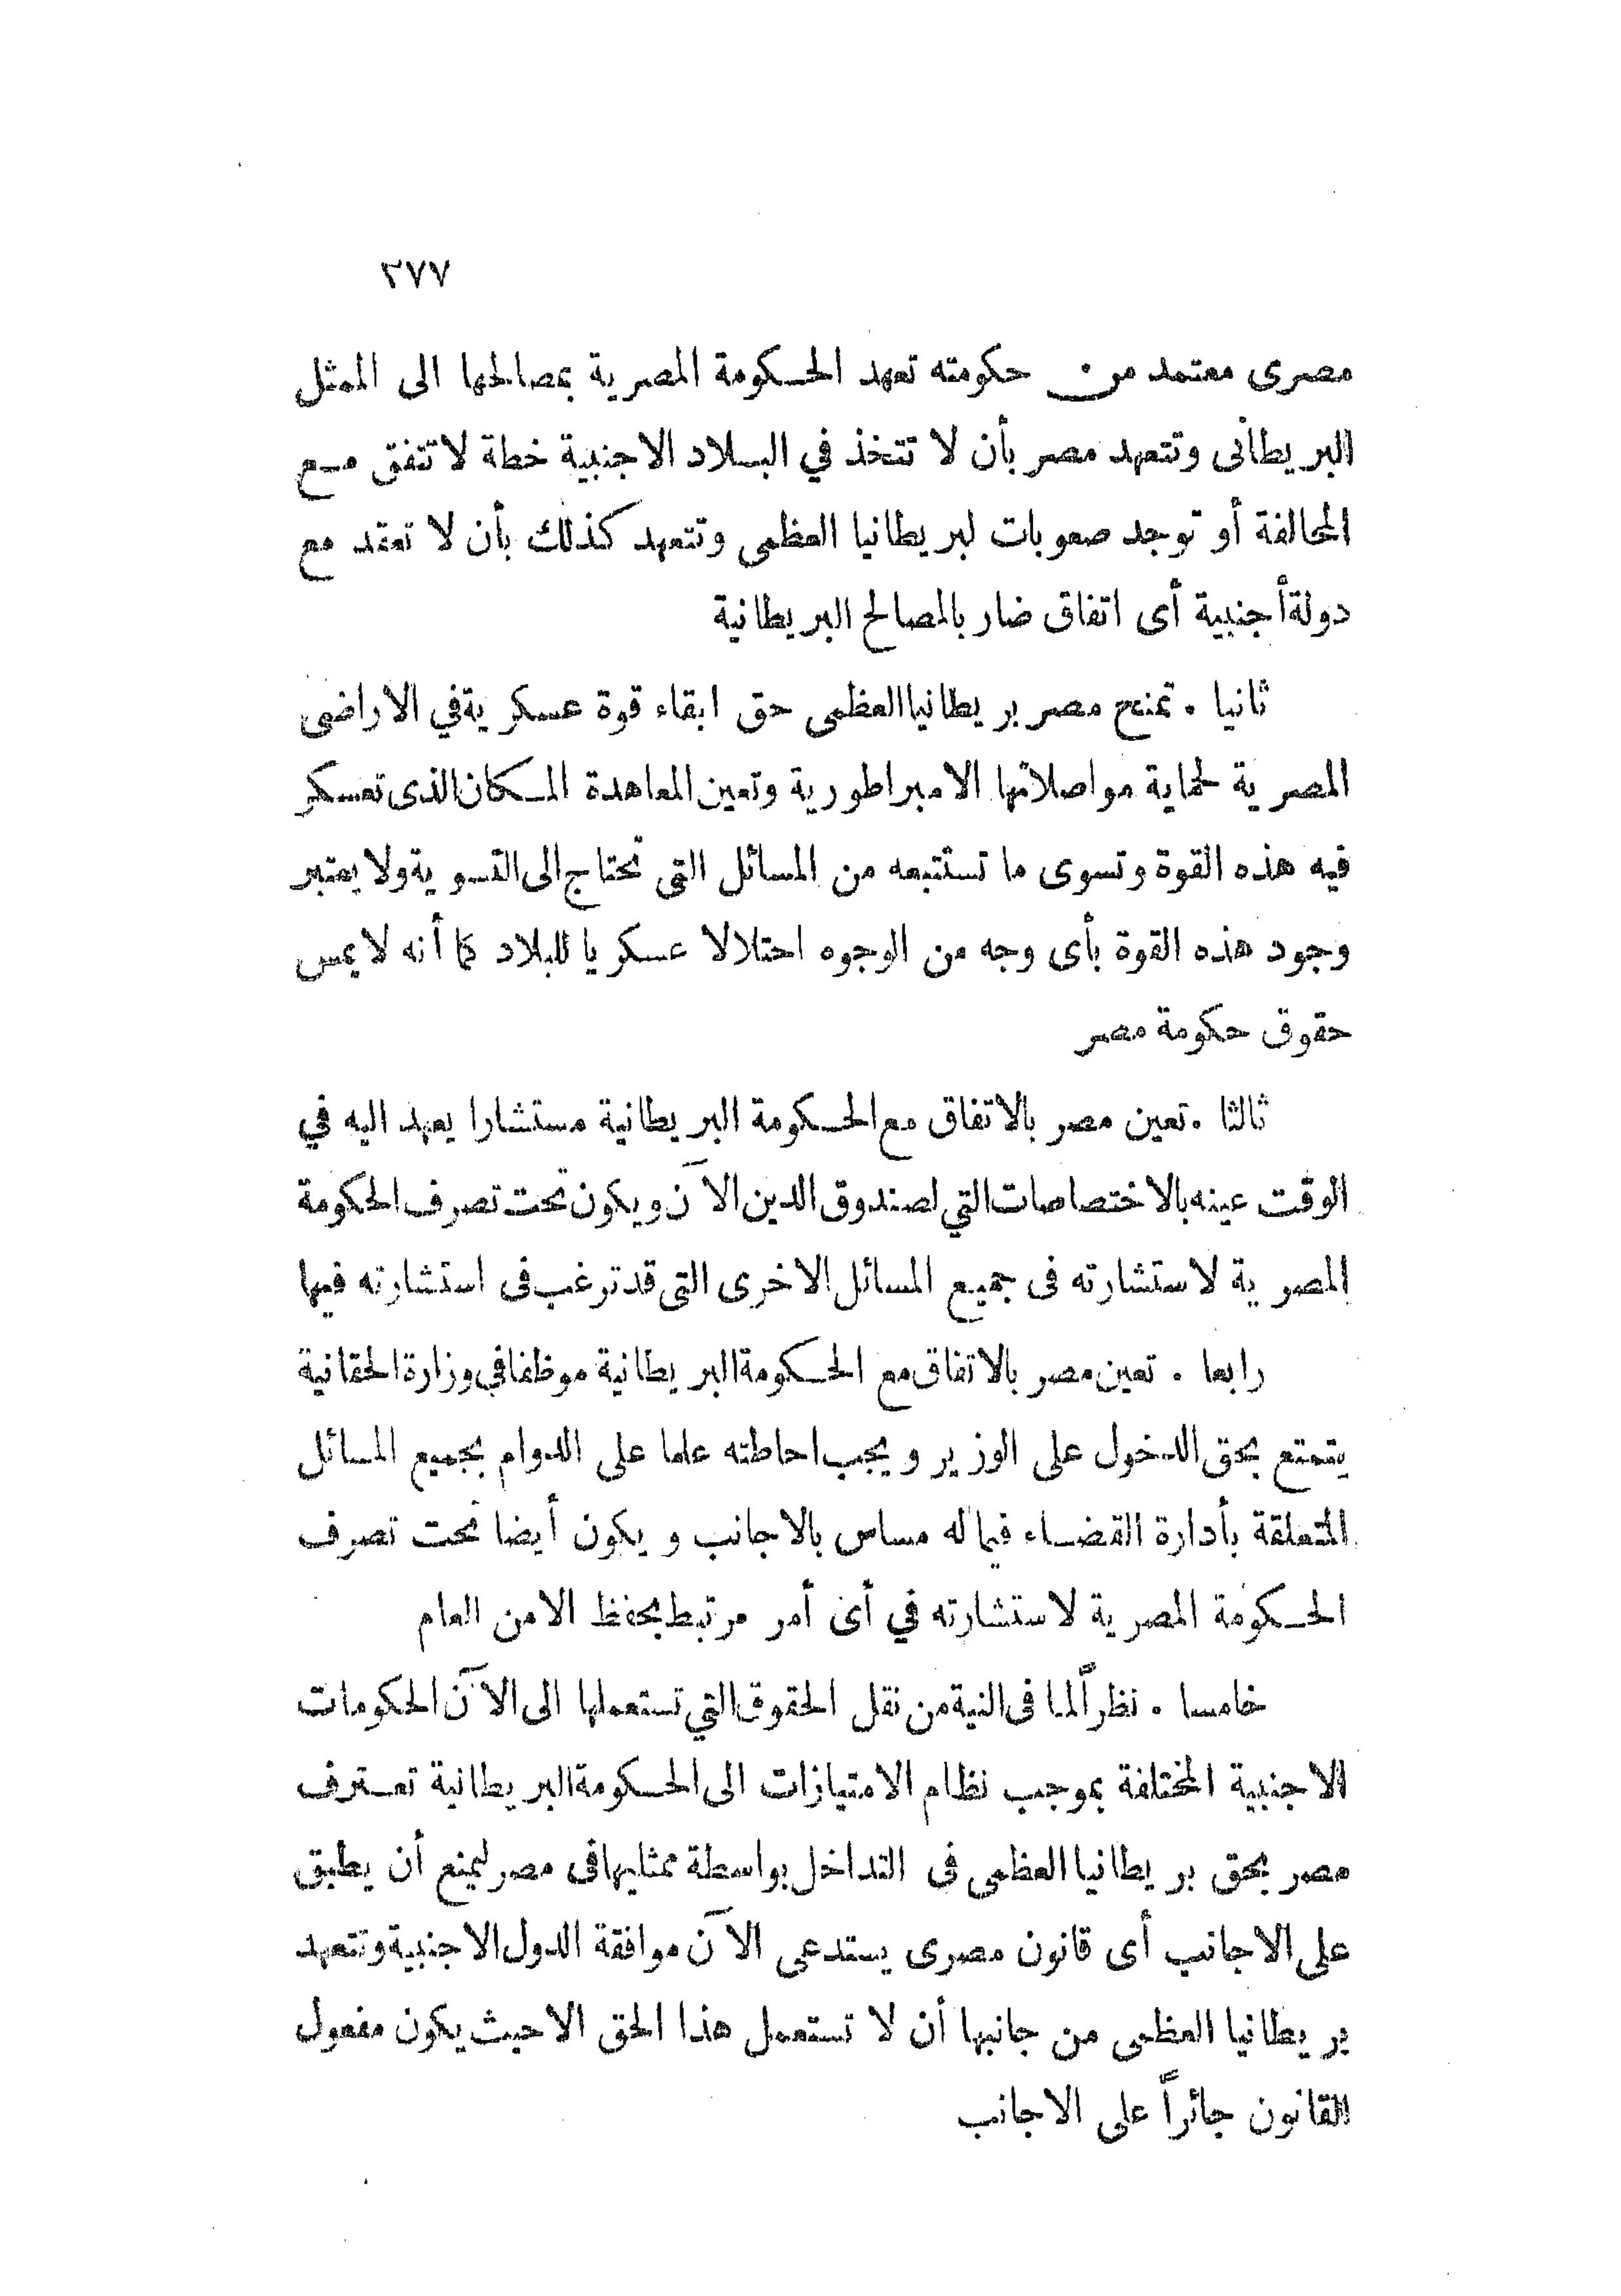 ٣٧٧
مصرى معتمد من حكومته تعهد الحكومة المصرية بمصالحها الى الممثل
البريطانى وتتعهد مصر بأن لا تتخذ في البلاد الاجنبية خطة لا تتفق مع
المحالفة أو توجد صعوبات لبريطانيا العظمى وتتعهد كذلك بأن لا تعقد مع
دولة أجنبية أى اتفاق ضار بالمصالح البريطانية
ثانيا . تمنح مصر بريطانيا العظمى حق ابقاء قوة عسكرية في الاراضى
المصرية لحماية مواصلاتها الامبراطورية وتعين المعاهدة المكان الذى تعسكر
فيه هذه القوة وتسوى ما تستتبعه من المسائل التى تحتاج الى التسوية ولا يعتبر
وجود هذه القوة بأى وجه من الوجوه احتلالا عسكريا للبلاد كما أنه لا يمس
حقوق حكومة مصر
ثالثا . تعين مصر بالاتفاق مع الحكومة البريطانية مستشارا يعهد اليه في
الوقت عينه بالاختصاصات التي لصندوق الدين الآن ويكون تحت تصرف الحكومة
المصرية لاستشارته فى جميع المسائل الاخرى التى قد ترغب فى استشارته فيها
رابعا . تعين مصر بالاتفاق مع الحكومة البريطانية موظفا في وزارة الحقانية
يتمتع بحق الدخول على الوزير ويجب احاطته علما على الدوام بجميع المسائل
المتعلقة بأدارة القضاء فيما له مساس بالاجانب ويكون أيضا تحت تصرف
الحكومة المصرية لاستشارته في أى أمر مرتبط بحفظ الامن العام
خامسا . نظراً لما فى النية من نقل الحقوق التي تستعملها الى الآن الحكومات
الاجنبية المختلفة بموجب نظام الامتيازات الى الحكومة البريطانية تعترف
مصر بحق بريطانيا العظمى فى التداخل بواسطة ممثليها فى مصر ليمنع أن يطبق
على الاجانب أى قانون مصرى يستدعى الآن موافقة الدول الاجنبية وتتعهد
بريطانيا العظمى من جانبها أن لا تستعمل هذا الحق الا حيث يكون مفعول
القانون جائراً على الاجانب